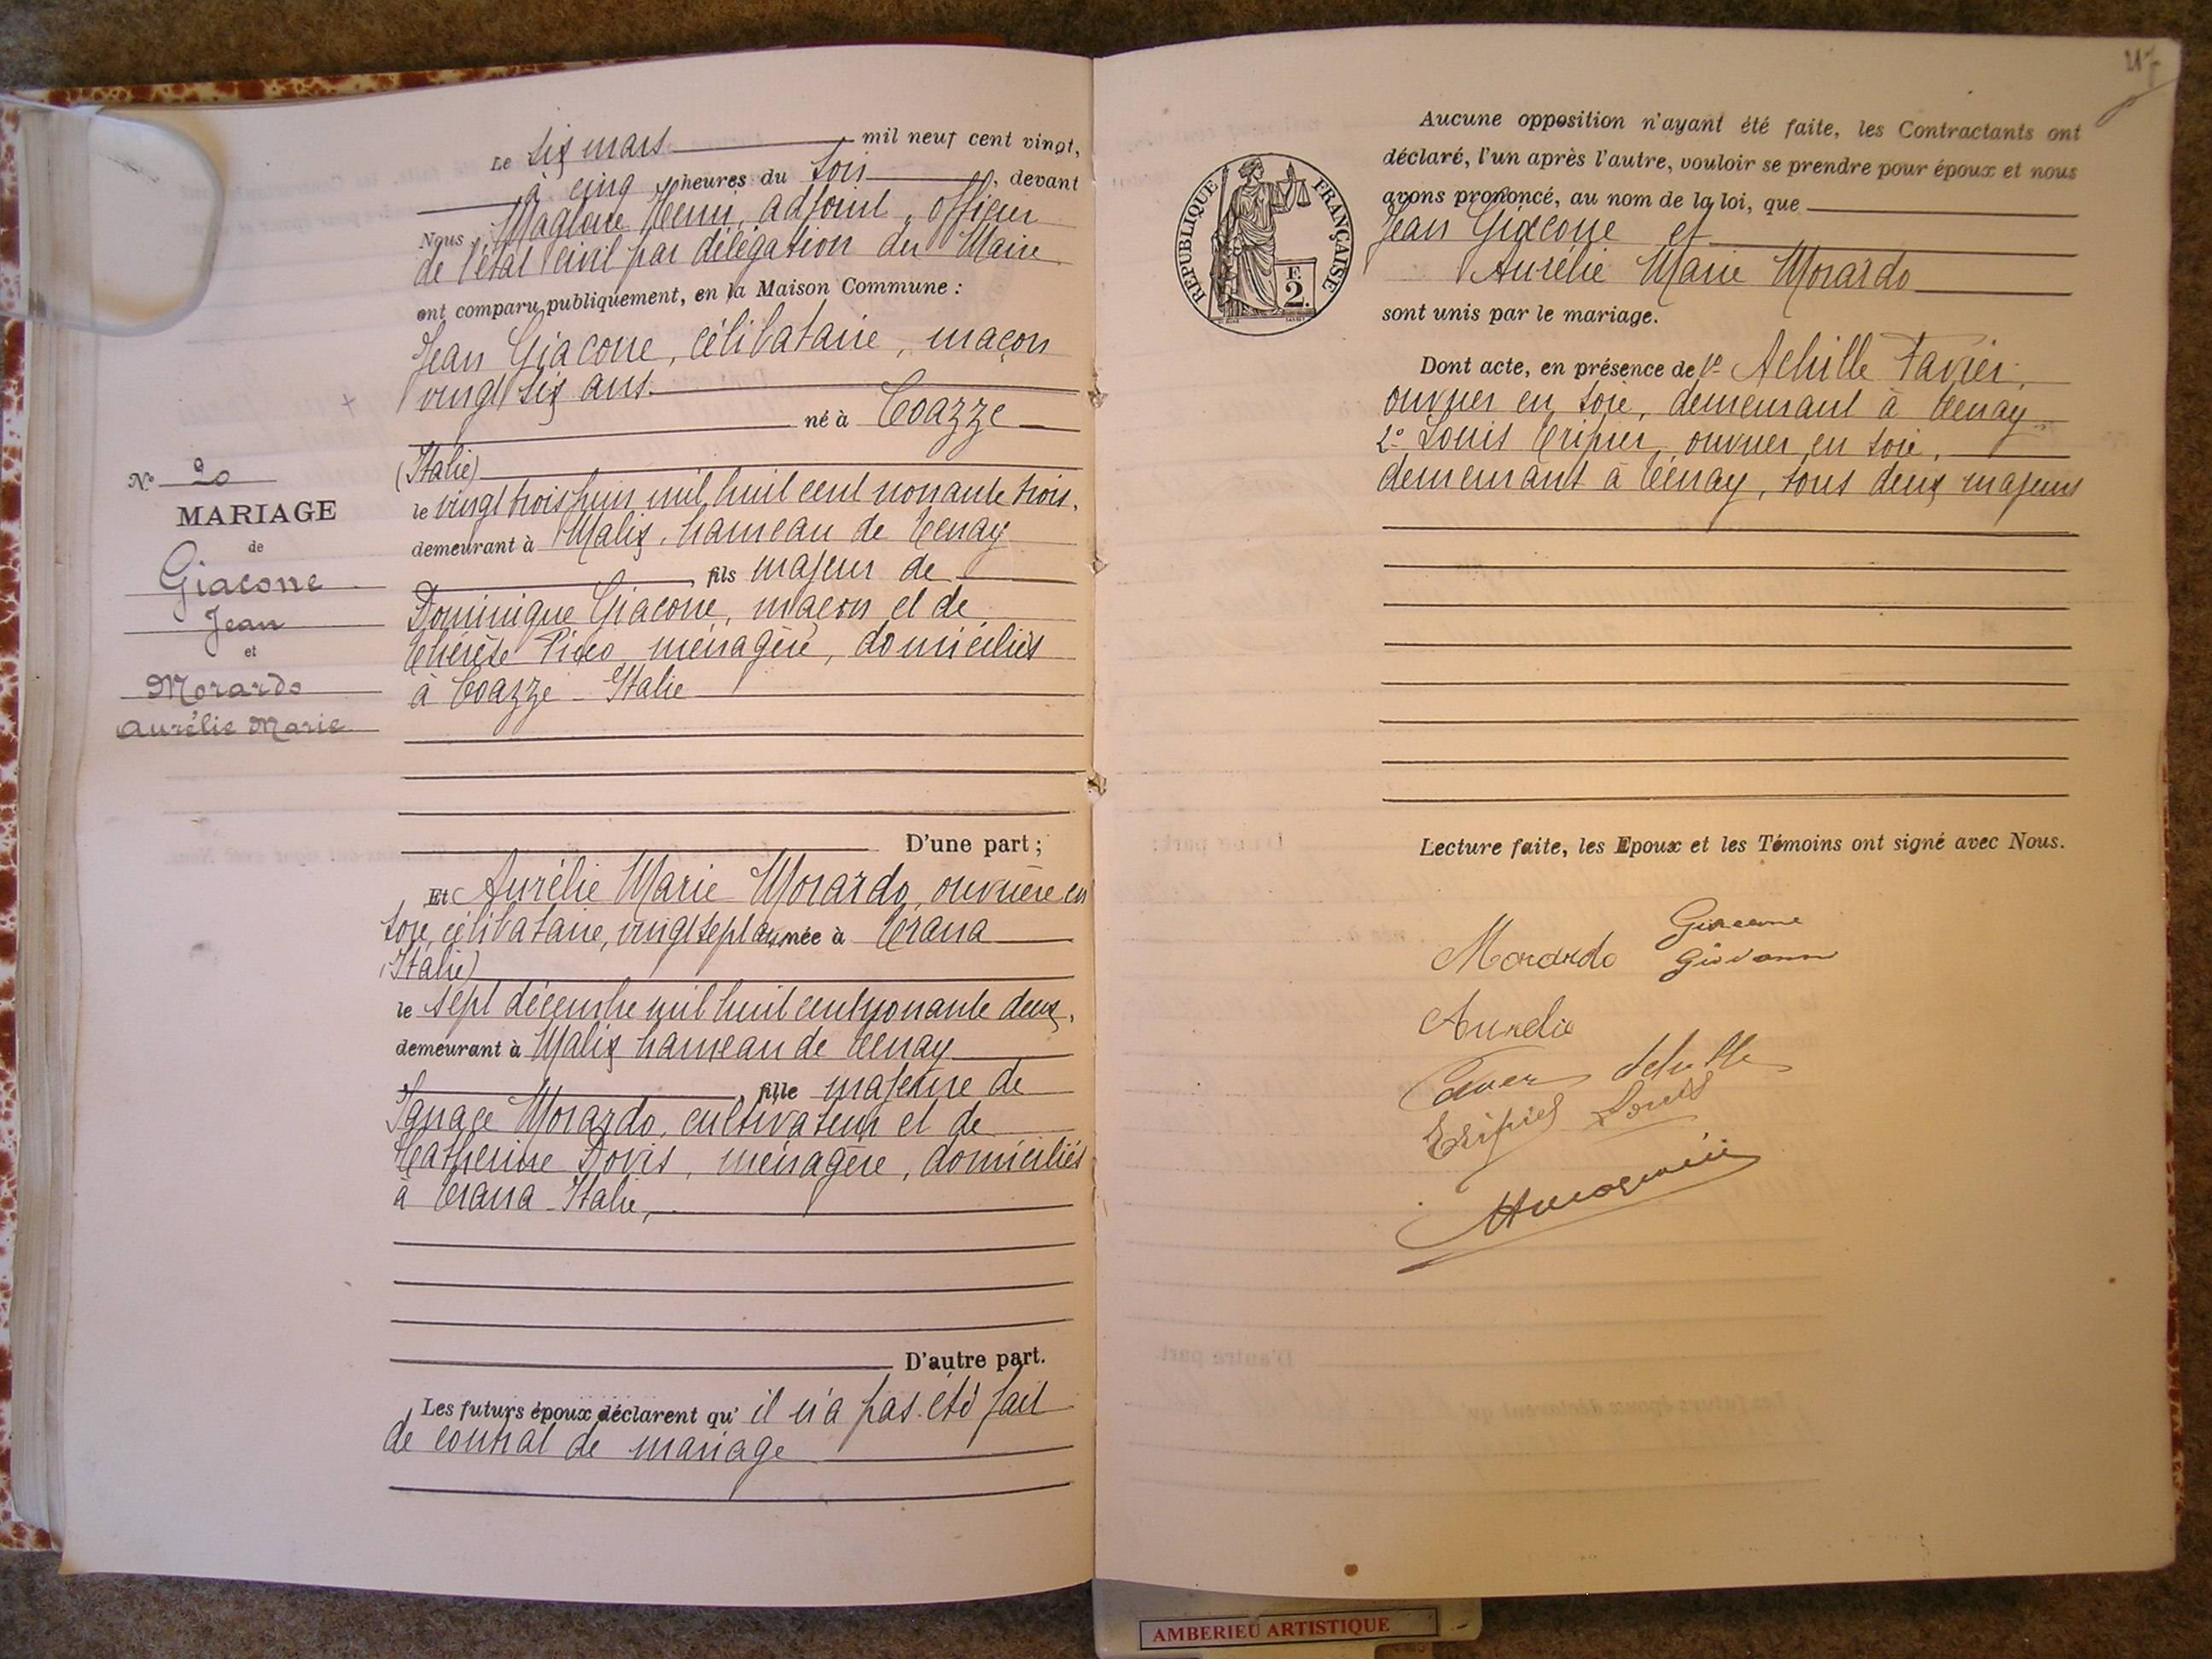 Le six mars mil neuf cent vingt,
à cinq heures du soir, devant
Nous Maglore Henri, adjoint, officier
de l'état civil par délégation du Maire
ont comparu publiquement, en la Maison Commune :
Jean Giacone, célibataire, maçon
vingt six ans.
né à Coazze
(Italie)
le vingt trois juin mil huit cent nonante trois,
demeurant à Malix, hameau de Tenay
fils majeur de
Dominique Giacone, maçon et de
Thérèse ménagère, domiciliés
à Coazze - Italie
D'une part ;
Et Aurélie Marie Morardo, ouvrière en
soie, célibataire, vingt sept ans, née à Trana
(Italie)
le sept décembre mil huit cent nonante deux,
demeurant à Malix hameau de Tenay
, fille majeure de
Ignace Morardo, cultivateur et de
Catherine Dovis, ménagère, domiciliés
à Trana - Italie,
D'autre part.
Les futurs époux déclarent qu' il n'a pas été fait
de contrat de mariage
No 20
MARIAGE
de
Giacone
Jean
et
Morardo
Aurélie Marie
Aucune opposition n'ayant été faite, les Contractants ont
déclaré, l'un après l'autre, vouloir se prendre pour époux et nous
avons prononcé, au nom de la loi, que
Jean Giacone et
Aurélie Marie Morardo
sont unis par le mariage.
RÉPUBLIQUE FRANÇAISE
F.
2.
Dont acte, en présence de 1° Achille Favier,
ouvrier en soie, demeurant à Tenay
2° Louis Tripier, ouvrier en soie,
demeurant à Tenay, tous deux majeurs
Lecture faite, les Epoux et les Témoins ont signé avec Nous.
Morardo Giacone
Giovanni
Aurelia
Tripier Louis
AMBERIEU ARTISTIQUE